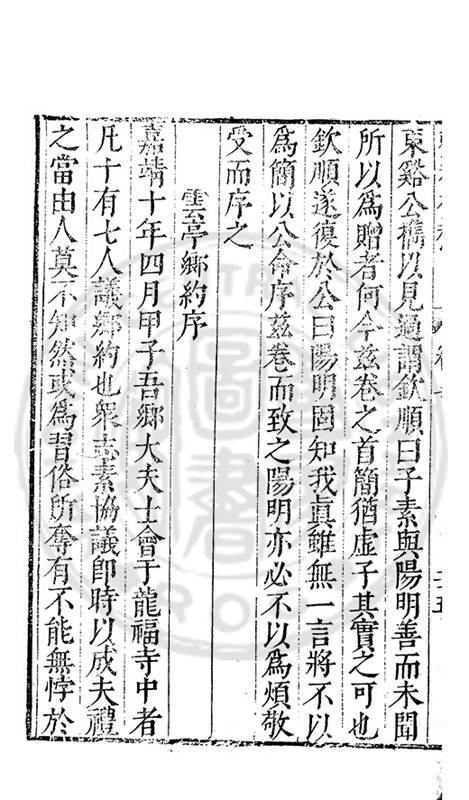 東谿公檇以見過謂欽順曰子素與陽明善而未聞
所以為贈者何今茲卷之首簡猶虛子其實之可也
欽順遂復於公曰陽明固知我真雖無一言將不以
為簡以公命序茲卷而致之陽明亦必不以為煩敬
受而序之
雲亭鄉約序
嘉靖十年四月甲子吾鄉大夫士會于龍福寺中者
凡十有七人議鄉約也眾志素協議即時以成夫禮
之當由人莫不知然或為習俗所奪有不能無悖於